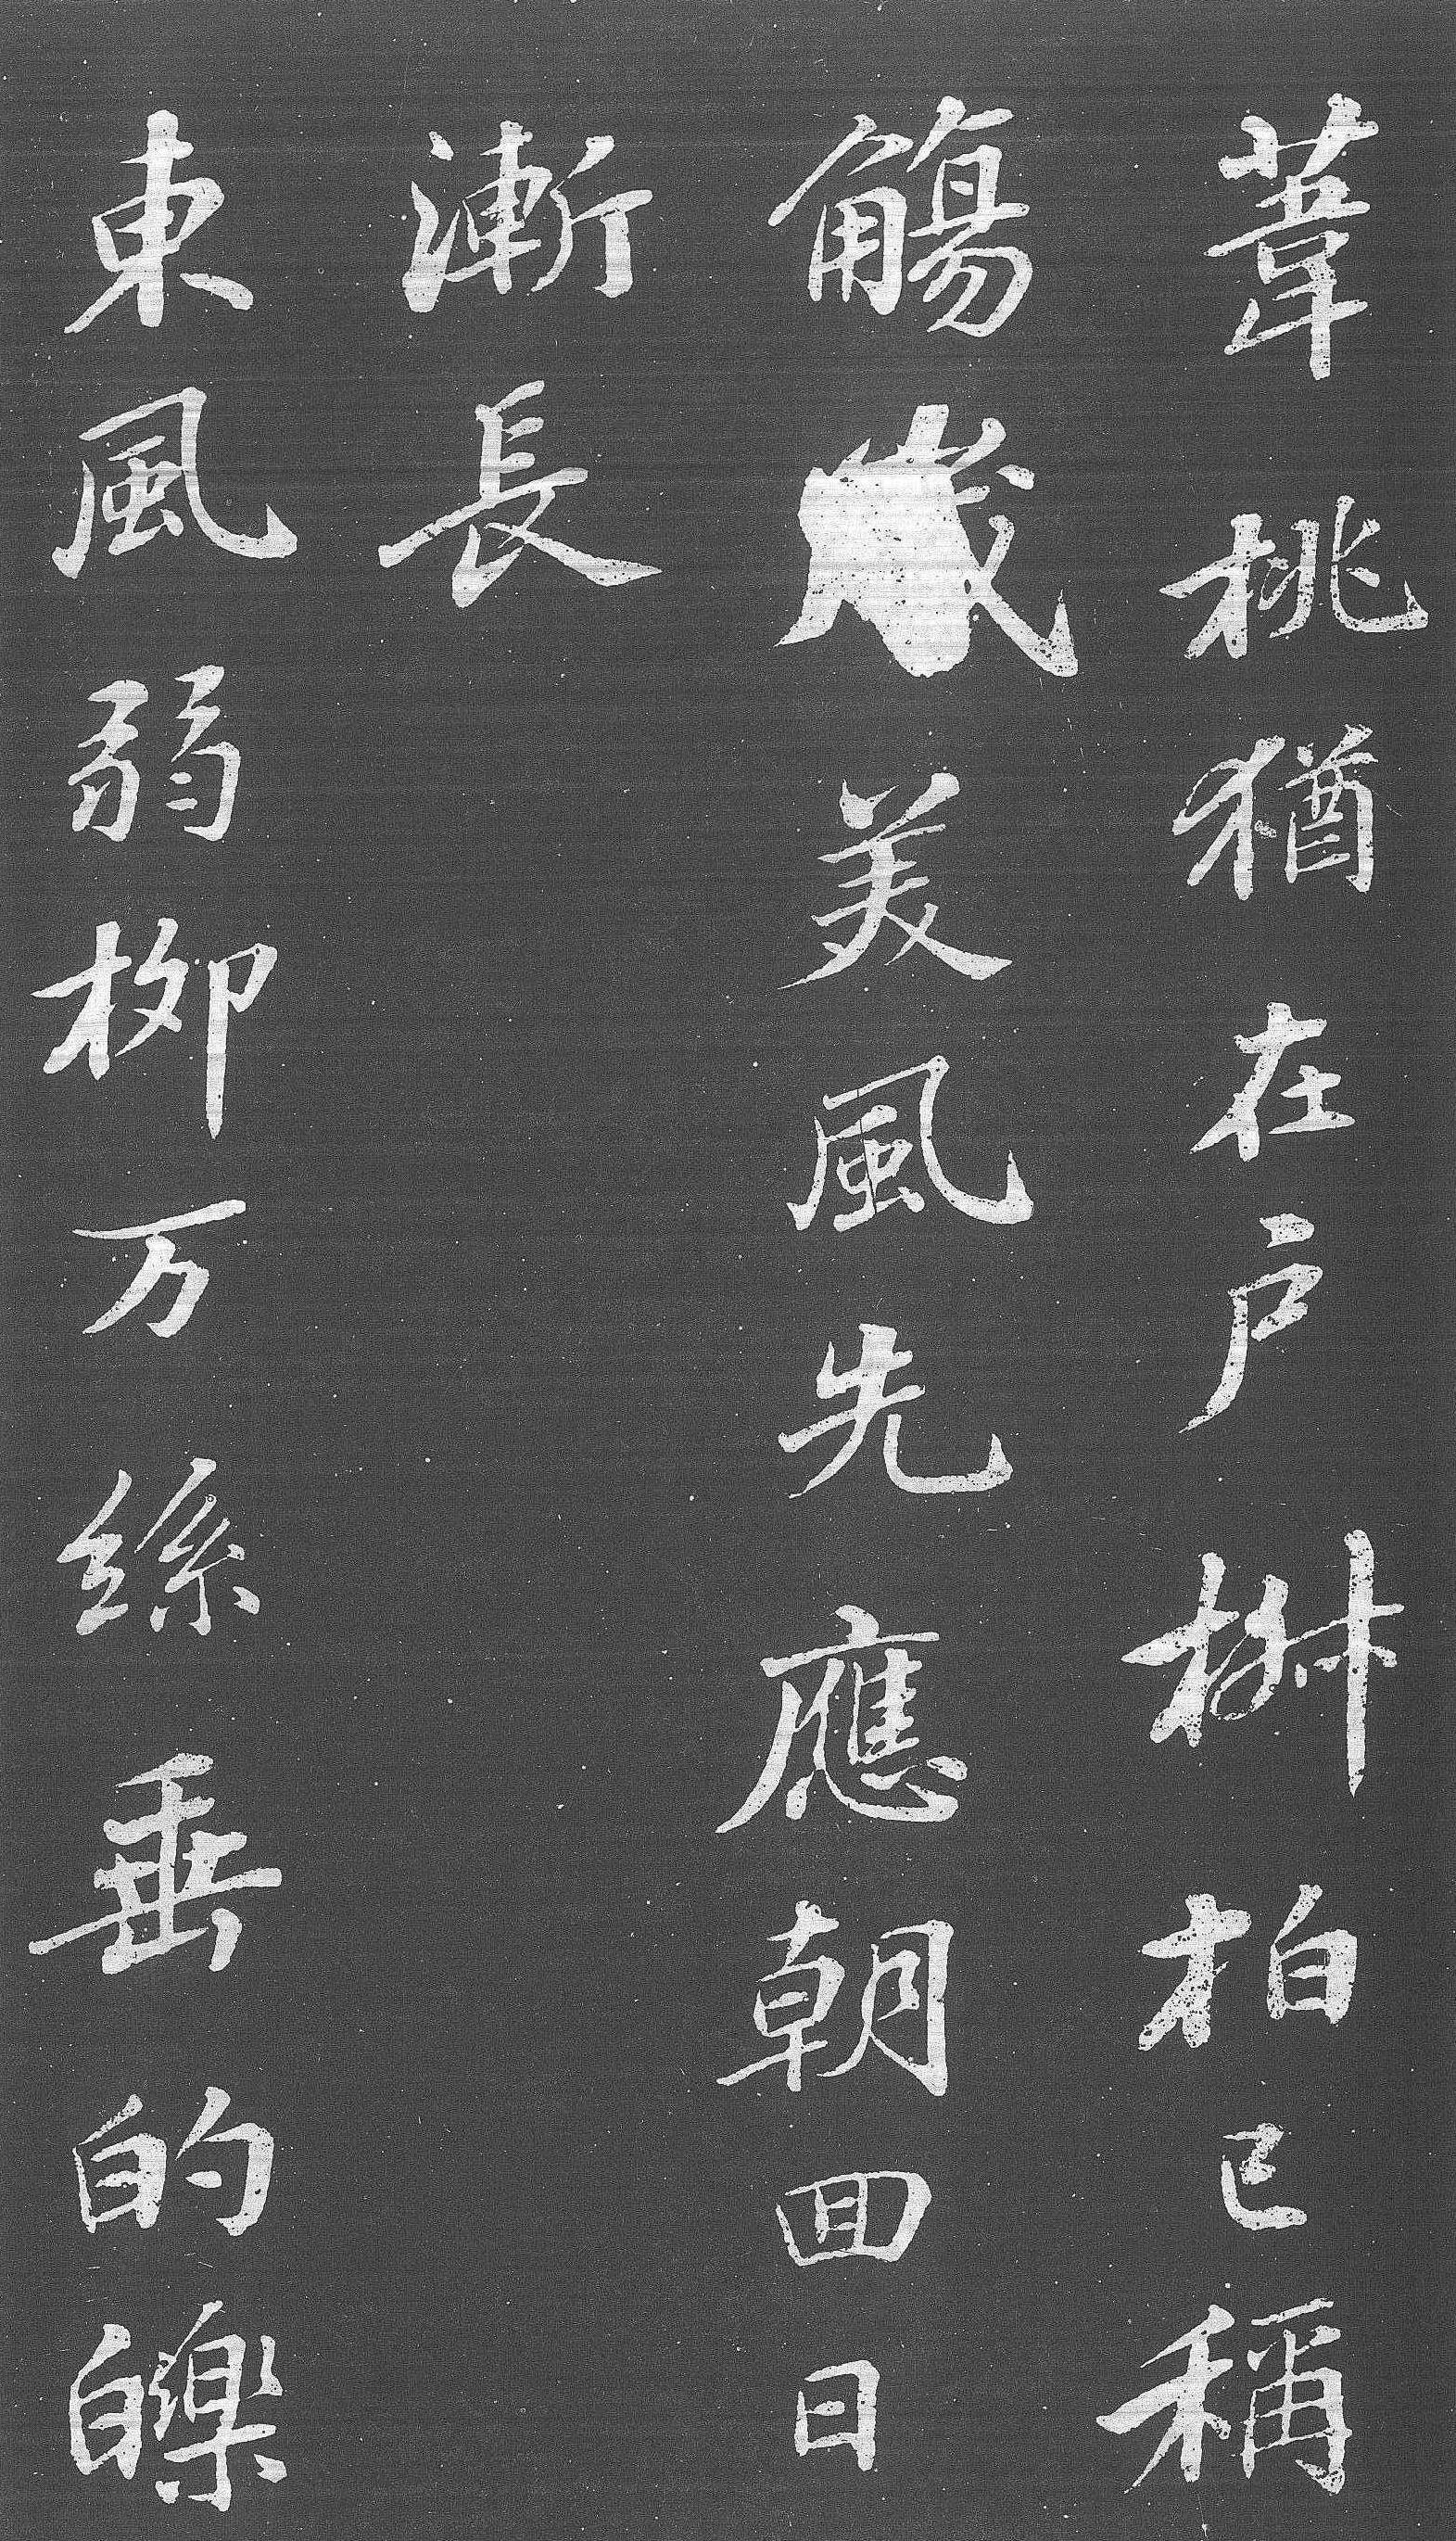 葦桃猶在户椒柏已稱
觴歲美風先應朝囬日
漸長
東風弱柳万絲垂的皪